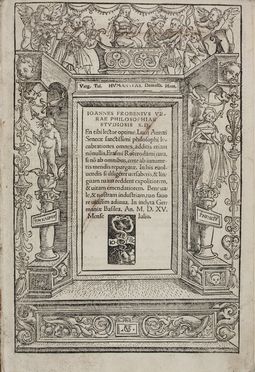 Virg. Tul. HVMANITAS. Demosth. Hom.
IOANNES FROBENIVS VE-
RAE PHILOSOPHIAE
STVDIOSIS S.D.
En tibi lector optime, Lucij Annæi
Senecæ sanctissimi philosophi lu-
cubrationes omnes, additis etiam
nonnullis, Erasmi Roterodami cura,
si nõ ab omnibus, certe ab innume-
ris mendis repurgatæ. In his euol-
uendis si diligẽter uersaberis, & lin-
guam tuam reddent expolitiorem,
& uitam emendatiorem. Bene ua-
le, & nostram industriam, tuo fauo
re uicissim adiuua. In inclyta Ger-
maniæ Basilea. An. M.D.XV.
Mense Iulio.